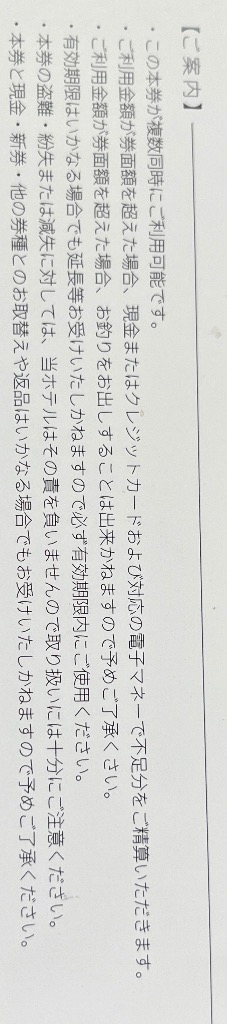 【ご案内】
・この本券が複数同時にご利用可能です。
・ご利用金額が券面額を超えた場合、現金またはクレジットカードおよび対応の電子マネーで不足分をご精算いただきます。
・ご利用金額が券面額を超えた場合、お釣りをお出しすることは出来かねますので予めご了承くさい。
・有効期限はいかなる場合でも延長等お受けいたしかねますので必ず有効期限内にご使用ください。
・本券の盗難・紛失または減失に対しては、当ホテルはその責を負いませんので取り扱いには十分にご注意ください。
・本券と現金・新券・他の券種とのお取替えや返品はいかなる場合でもお受けいたしかねますので予めご了承ください。